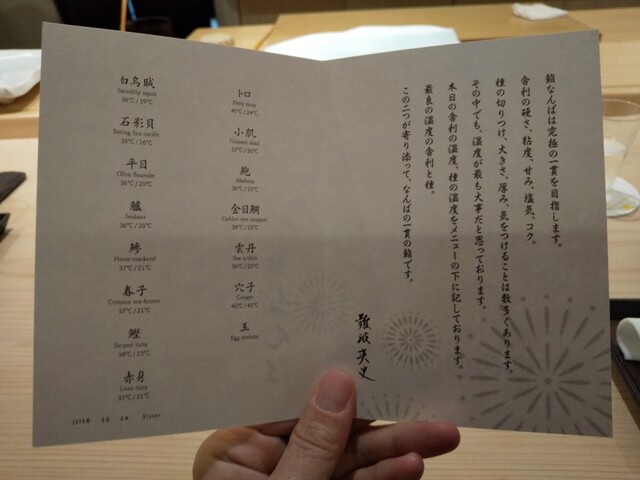 鮨なんばは究極の一貫を目指します。
舎利の硬さ、粘度、甘み、塩気、コク。
種の切りつけ、大きさ、厚み、気をつけることは数多くあります。
その中でも、温度が最も大事だと思っております。
本日の舎利の温度、種の温度をメニューの下に記しております。
最良の温度の舎利と種。
この二つが寄り添って、なんばの一貫の鮨です。
難波英史
トロ
Fatty tuna
40℃/24℃
小肌
Gizzard shad
37℃/20℃
鮑
Abalone
金目鯛
Golden eye snapper
雲丹
Sea urchin
36℃/20℃
穴子
Conger
40℃/40℃
玉
Egg omlette
白烏賊
Swordtip squid
36℃/19℃
石影貝
Strong Sea cockle
平目
Olive flounder
36℃/20℃
鱸
Seabass
36℃/20℃
鯵
Horse-mackerel
37℃/21℃
春子
Crimson sea-bream
37℃/21℃
鰹
Striped tuna
38℃/23℃
赤身
Lean tuna
37℃/21℃